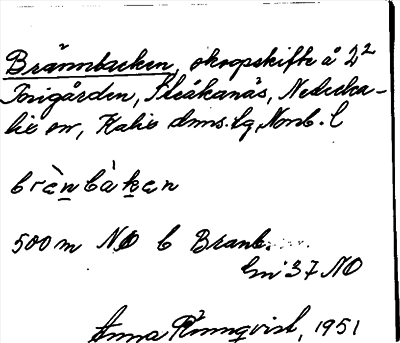 Brännbacken, skogsskifte å 2²
Torigården, Fleåkanäs, Nederka-
lix sn, Kalix dmns. lg, Norrb. l
brænbakæn
500 m NO b Brænb.
Gni 37 NO
Anna Rönnqvist, 1951